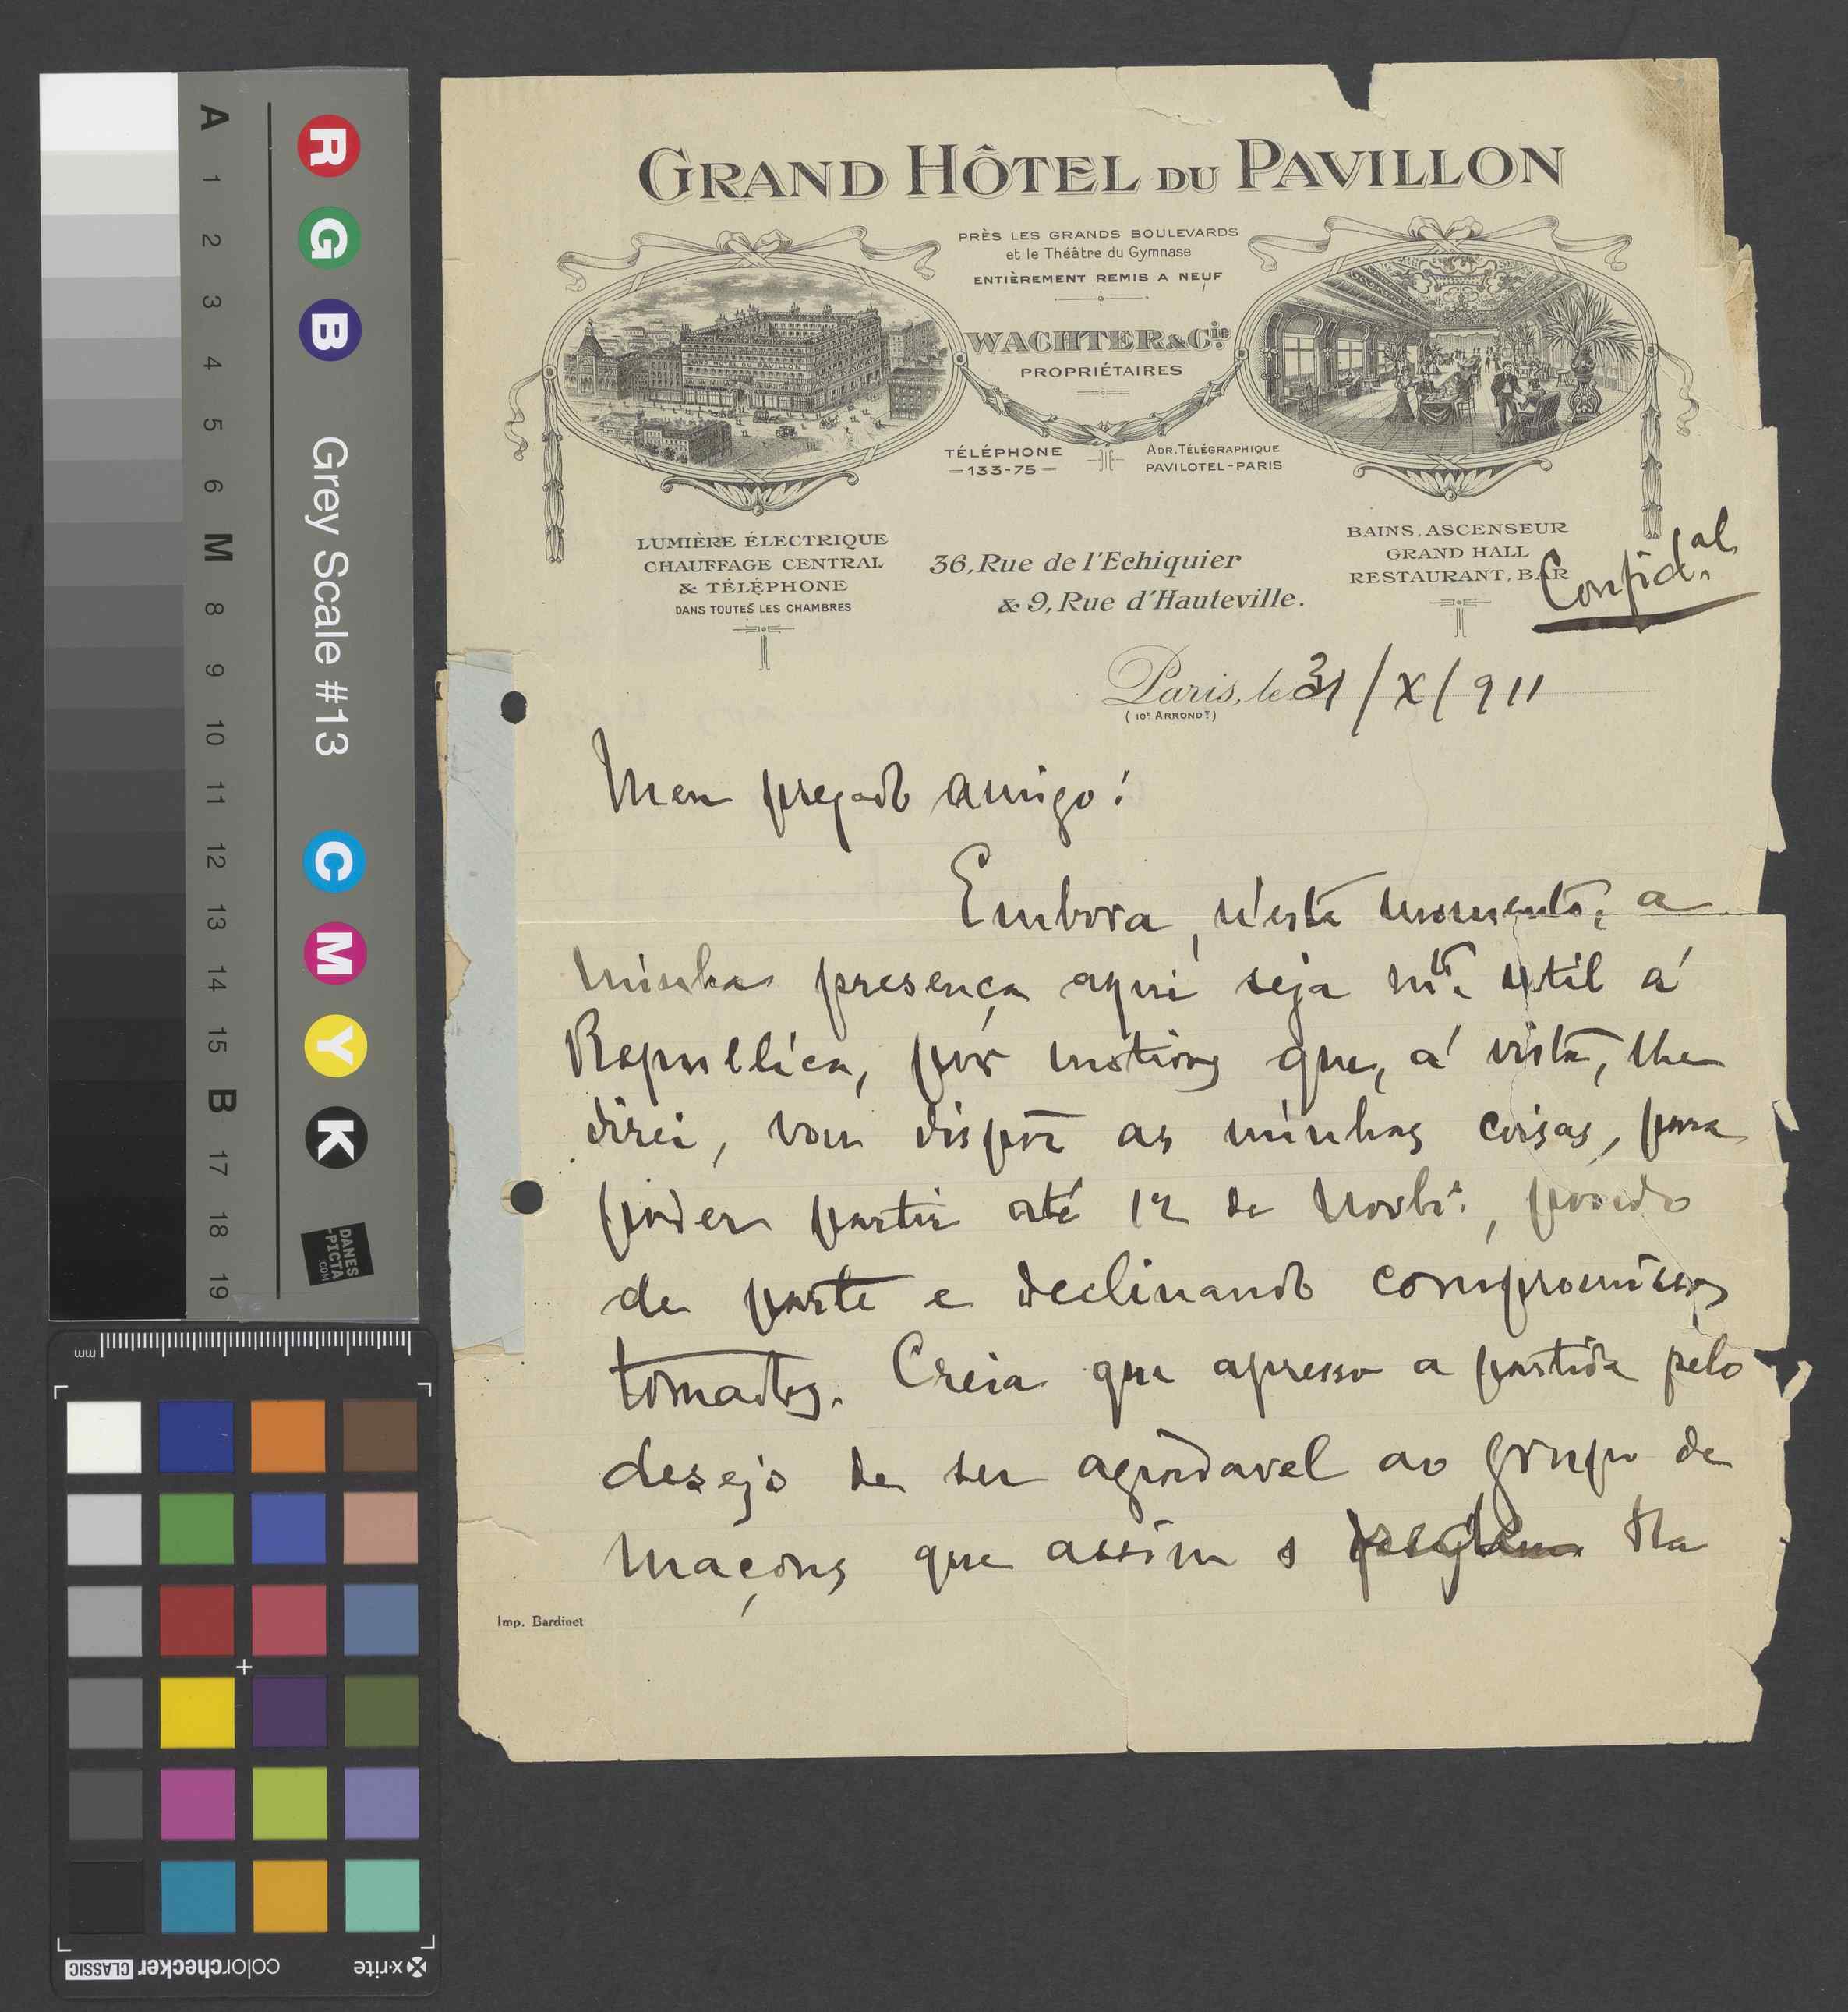 GRAND HÔTEL DU PAVILLON
PRÈS LES GRANDS BOULEVARDS
et le Théâtre du Gymnase
ENTIÈREMENT REMIS A NEUF
WACHTER & Cie
PROPRIÉTAIRES
HOTEL DU PAVILLON
TÉLÉPHONE
—133-75—
ADR. TÉLÉGRAPHIQUE
PAVILOTEL-PARIS
LUMIÈRE ÉLECTRIQUE
CHAUFFAGE CENTRAL
& TÉLÉPHONE
DANS TOUTES LES CHAMBRES
36, Rue de l'Echiquier
& 9, Rue d'Hauteville.
BAINS, ASCENSEUR
GRAND HALL
RESTAURANT, BAR
Confid.al
Paris, le 31/X/911
(10e ARRONDT)
Meu prezado amigo:
Embora, n'este momento, a
minha presença aqui seja mto. util á
Republica, por motivos que, á vista, lhe
direi, vou dispôr as minhas coisas, para
poder partir até 12 de Novbr.o, pondo
de parte e declinando compromissos
tomados. Creia que apresso a partida pelo
desejo de ser agradavel ao grupo de
maçons que assim o
Imp. Bardinet
A 1 2 3 4 5 6 M 8 9 10 11 12 13 14 15 B 17 18 19
R G B Grey Scale #13 C M Y K
DANES
-PICTA
.COM
mm
x-rite colorchecker CLASSIC